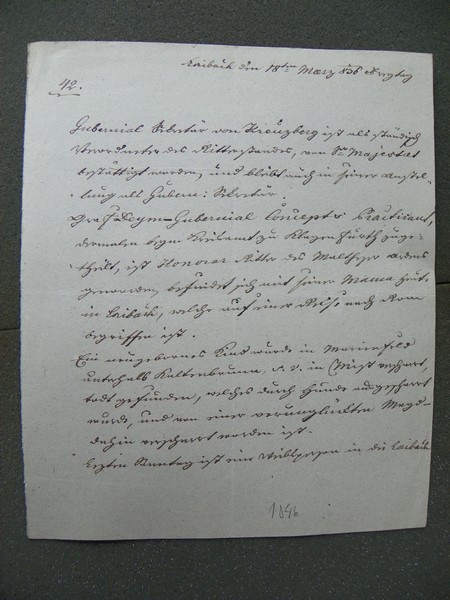 Laibach den 18ten März 836 Freytag
42.
Gubernial Sekretär von Kreuzberg ist als ständisch
Verordneter des Ritterstandes, von Sr Majestät
bestättigt worden, und bleibt auch in seiner Anstel-
lung als Gubern: Sekretär.
Graf Gubernial Concepts Practicant,
dermalen beym Kreisamt zu Klagenfurth zuge-
theilt, ist Honorar Ritter des Maltheser Ordens
geworden, befindet sich mit seiner Mama heute
in Laibach, welche auf einer Reise nach Rom
begriffen ist.
Ein neugebornes Kind wurde in Marienfeld
unterhalb Kaltenbrunn, s. v. in Mist verscharrt,
todt gefunden, welches durch Hunde ausgescharrt
wurde, und von einer verunglückten Magd
dahin verscharrt worden ist.
Letzten Sonntag ist eine Weibsperson in die Laibach
1836